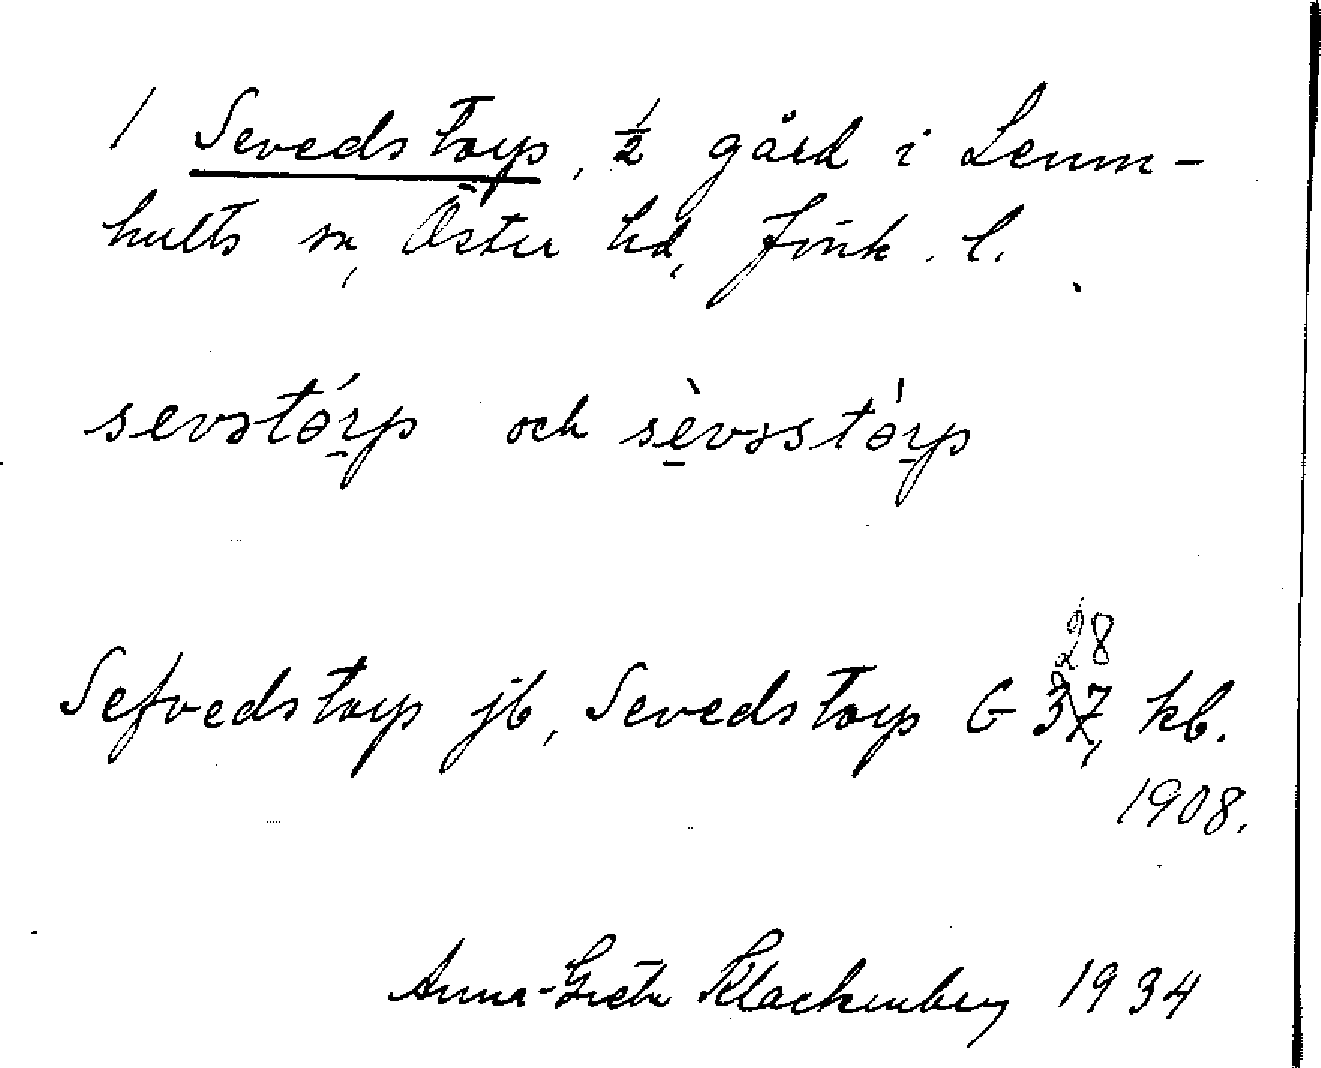 1 Sevedstorp, ½ gård i Lenn-
hults sn, Östra hd, Jönk. l.
sevstórp och sèvəstórp
Sefvedstorp jb, Sevedstorp G 37, kb.
28
1908.
Anna-Greta Klackenberg 1934